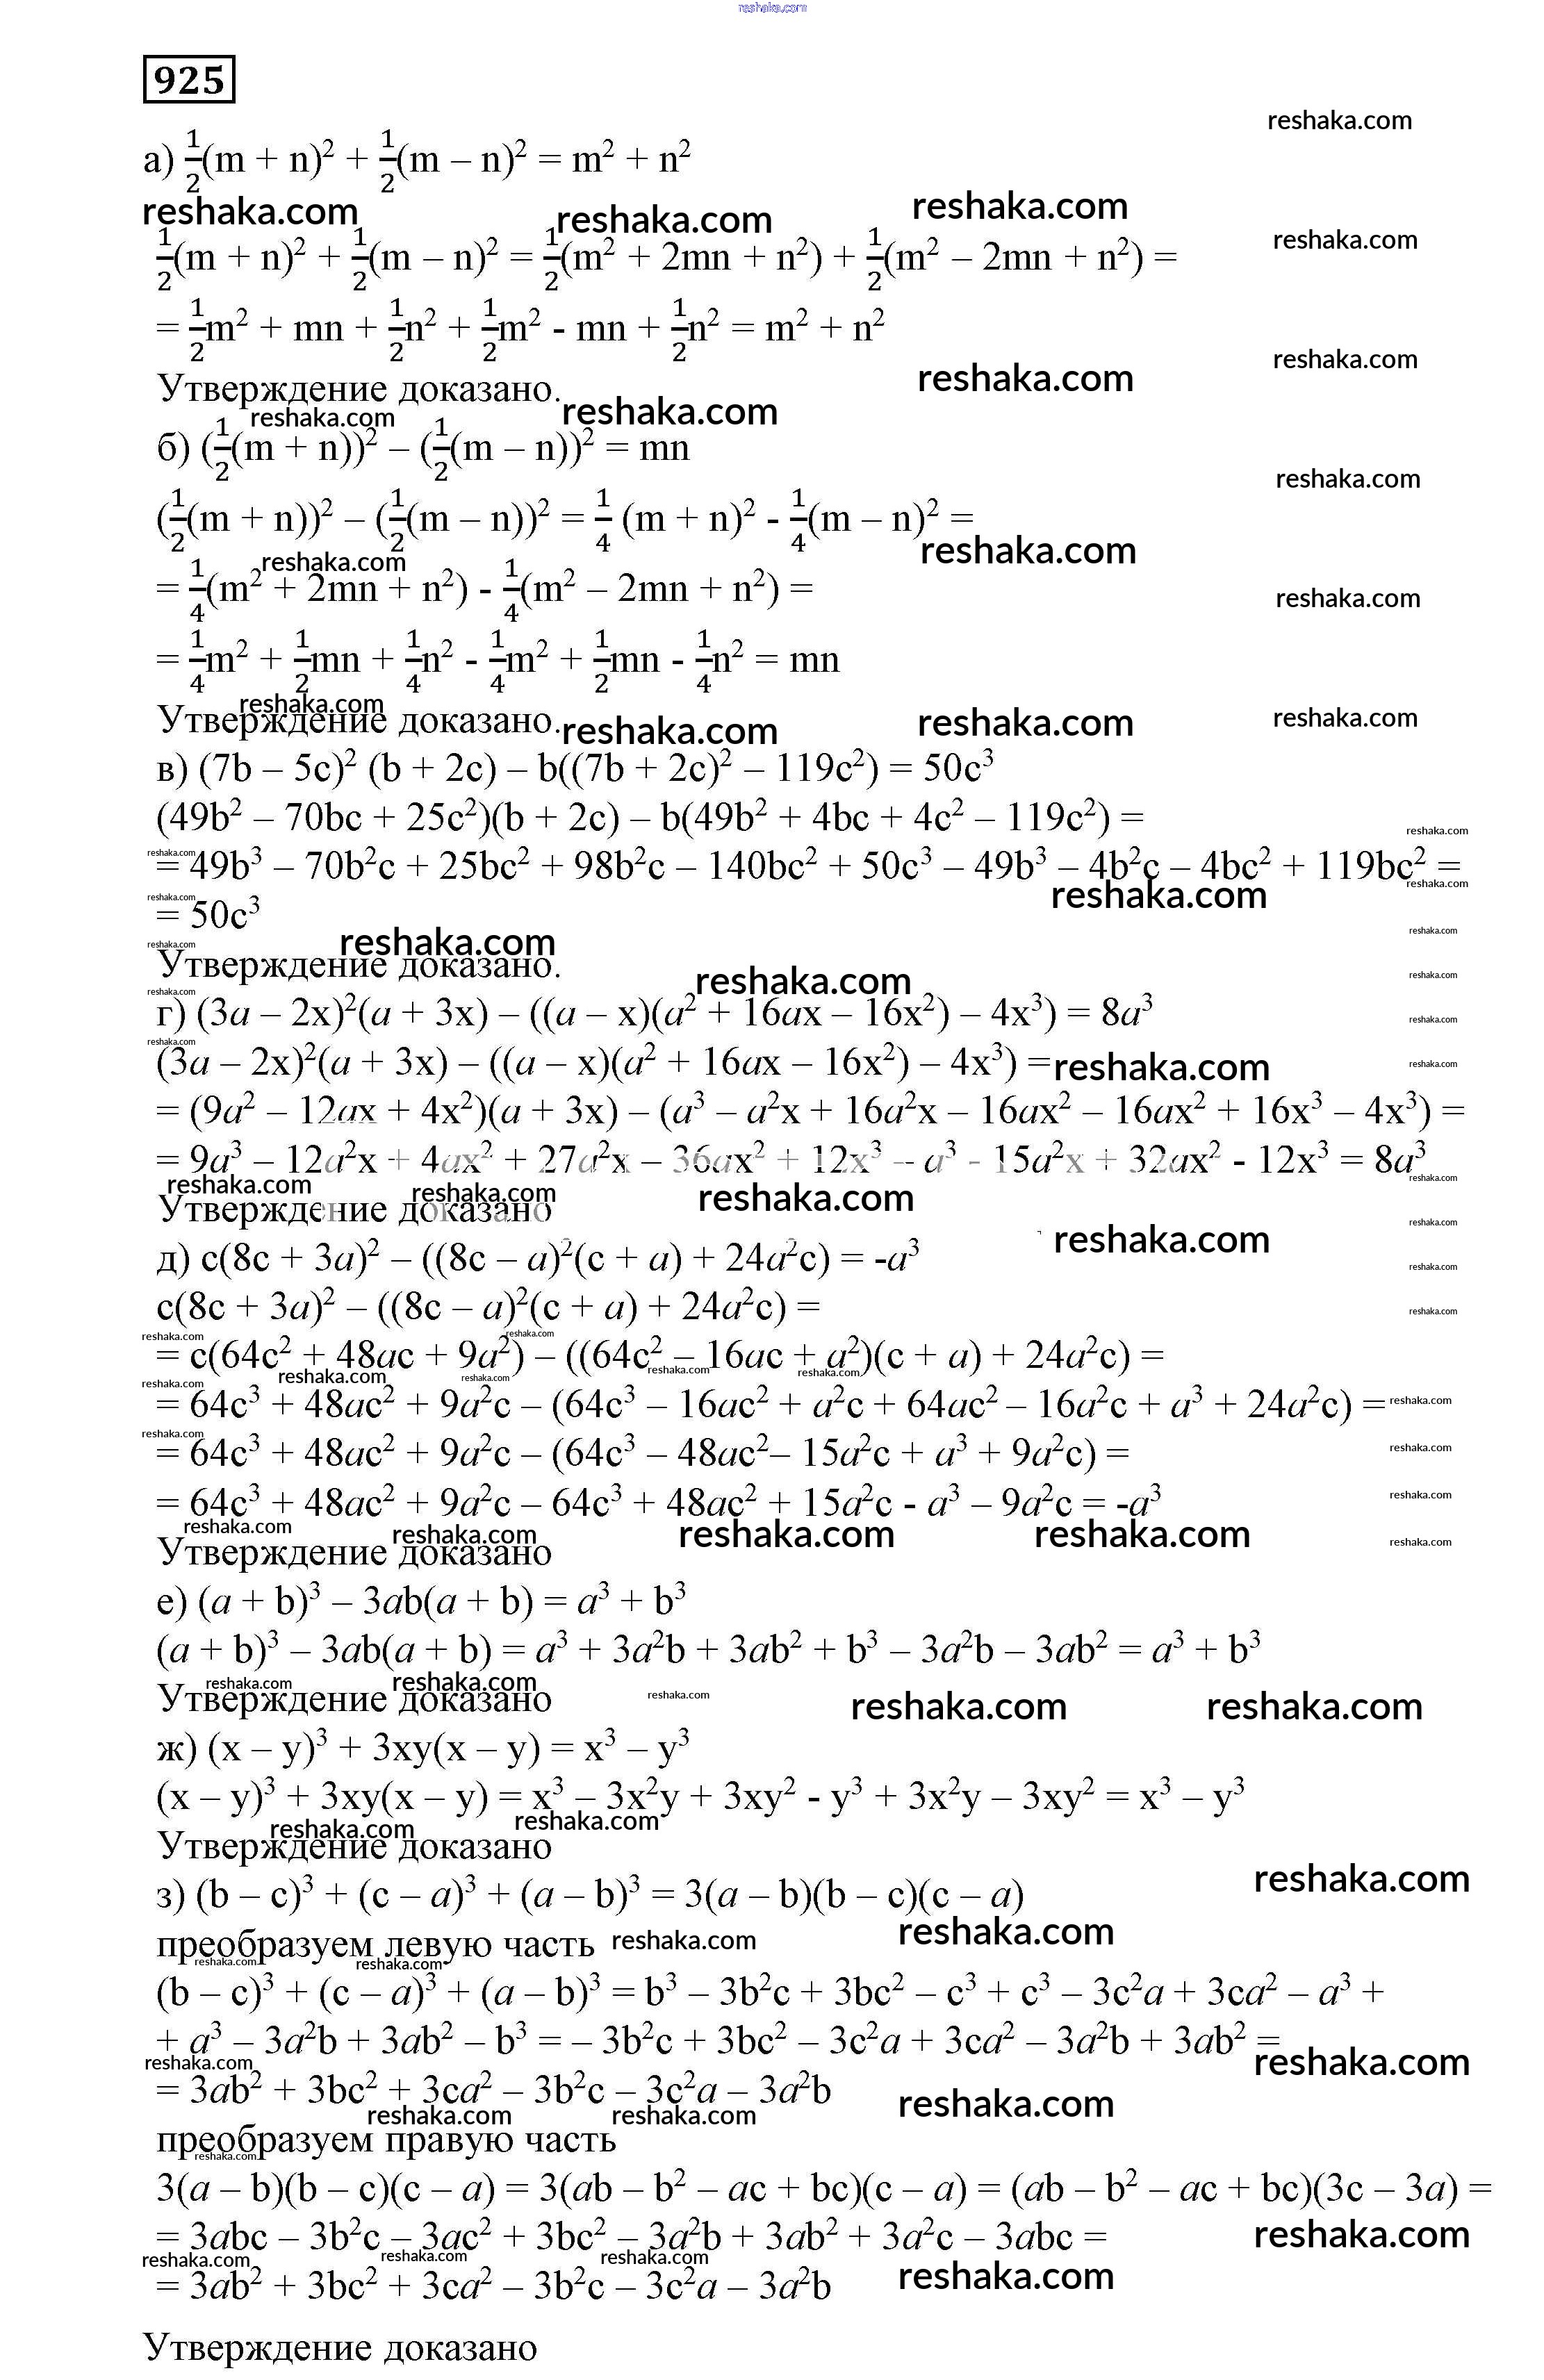 reshaka.com
925
reshaka.com
а) 1/2(m + n)² + 1/2(m – n)² = m² + n²
reshaka.com reshaka.com reshaka.com
reshaka.com
1/2(m + n)² + 1/2(m – n)² = 1/2(m² + 2mn + n²) + 1/2(m² – 2mn + n²) =
= 1/2m² + mn + 1/2n² + 1/2m² - mn + 1/2n² = m² + n²
reshaka.com
Утверждение доказано.
reshaka.com
reshaka.com reshaka.com
б) (1/2(m + n))² – (1/2(m – n))² = mn
reshaka.com
(1/2(m + n))² – (1/2(m – n))² = 1/4 (m + n)² - 1/4(m – n)² =
reshaka.com reshaka.com
= 1/4(m² + 2mn + n²) - 1/4(m² – 2mn + n²) =
reshaka.com
= 1/4m² + 1/2mn + 1/4n² - 1/4m² + 1/2mn - 1/4n² = mn
reshaka.com
Утверждение доказано.
reshaka.com reshaka.com reshaka.com
в) (7b – 5c)² (b + 2c) – b((7b + 2c)² – 119c²) = 50c³
(49b² – 70bc + 25c²)(b + 2c) – b(49b² + 4bc + 4c² – 119c²) =
reshaka.com
reshaka.com
= 49b³ – 70b²c + 25bc² + 98b²c – 140bc² + 50c³ – 49b³ – 4b²c – 4bc² + 119bc² =
reshaka.com reshaka.com
reshaka.com
= 50c³
reshaka.com
reshaka.com reshaka.com
Утверждение доказано.
reshaka.com reshaka.com
reshaka.com
г) (3a – 2x)²(a + 3x) – ((a – x)(a² + 16ax – 16x²) – 4x³) = 8a³
reshaka.com
reshaka.com
(3a – 2x)²(a + 3x) – ((a – x)(a² + 16ax – 16x²) – 4x³) =
reshaka.com reshaka.com
= (9a² – 12ax + 4x²)(a + 3x) – (a³ – a²x + 16a²x – 16ax² – 16ax² + 16x³ – 4x³) =
= 9a³ – 12a²x + 4ax² + 27a²x – 36ax² + 12x³ – a³ - 15a²x + 32ax² - 12x³ = 8a³
reshaka.com reshaka.com reshaka.com reshaka.com
Утверждение доказано
reshaka.com
reshaka.com
д) c(8c + 3a)² – ((8c – a)²(c + a) + 24a²c) = -a³
reshaka.com
c(8c + 3a)² – ((8c – a)²(c + a) + 24a²c) =
reshaka.com
reshaka.com reshaka.com
= c(64c² + 48ac + 9a²) – ((64c² – 16ac + a²)(c + a) + 24a²c) =
reshaka.com reshaka.com reshaka.com reshaka.com
reshaka.com
= 64c³ + 48ac² + 9a²c – (64c³ – 16ac² + a²c + 64ac² – 16a²c + a³ + 24a²c) =
reshaka.com
reshaka.com
= 64c³ + 48ac² + 9a²c – (64c³ – 48ac²– 15a²c + a³ + 9a²c) =
reshaka.com
= 64c³ + 48ac² + 9a²c – 64c³ + 48ac² + 15a²c - a³ – 9a²c = -a³
reshaka.com
reshaka.com reshaka.com reshaka.com reshaka.com
Утверждение доказано
reshaka.com
е) (a + b)³ – 3ab(a + b) = a³ + b³
(a + b)³ – 3ab(a + b) = a³ + 3a²b + 3ab² + b³ – 3a²b – 3ab² = a³ + b³
reshaka.com reshaka.com reshaka.com
Утверждение доказано
reshaka.com reshaka.com
ж) (x – y)³ + 3xy(x – y) = x³ – y³
(x – y)³ + 3xy(x – y) = x³ – 3x²y + 3xy² - y³ + 3x²y – 3xy² = x³ – y³
reshaka.com reshaka.com
Утверждение доказано
reshaka.com
з) (b – c)³ + (c – a)³ + (a – b)³ = 3(a – b)(b – c)(c – a)
преобразуем левую часть
reshaka.com reshaka.com
reshaka.com reshaka.com
(b – c)³ + (c – a)³ + (a – b)³ = b³ – 3b²c + 3bc² – c³ + c³ – 3c²a + 3ca² – a³ +
+ a³ – 3a²b + 3ab² – b³ = – 3b²c + 3bc² – 3c²a + 3ca² – 3a²b + 3ab² =
reshaka.com reshaka.com
= 3ab² + 3bc² + 3ca² – 3b²c – 3c²a – 3a²b
reshaka.com reshaka.com reshaka.com
преобразуем правую часть
reshaka.com
3(a – b)(b – c)(c – a) = 3(ab – b² – ac + bc)(c – a) = (ab – b² – ac + bc)(3c – 3a) =
= 3abc – 3b²c – 3ac² + 3bc² – 3a²b + 3ab² + 3a²c – 3abc =
reshaka.com
reshaka.com reshaka.com reshaka.com reshaka.com
= 3ab² + 3bc² + 3ca² – 3b²c – 3c²a – 3a²b
Утверждение доказано